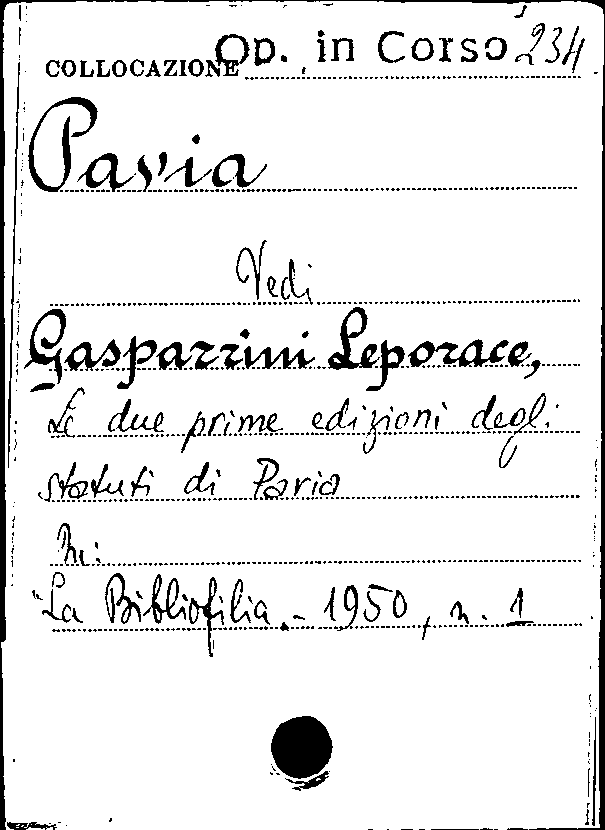 COLLOCAZIONE Op. in Corso 234
Pavia
Vedi
Gasparrini Leporace,
Le due prime edizioni degli
statuti di Pavia
In:
"La Bibliofilia. - 1950, n. 1